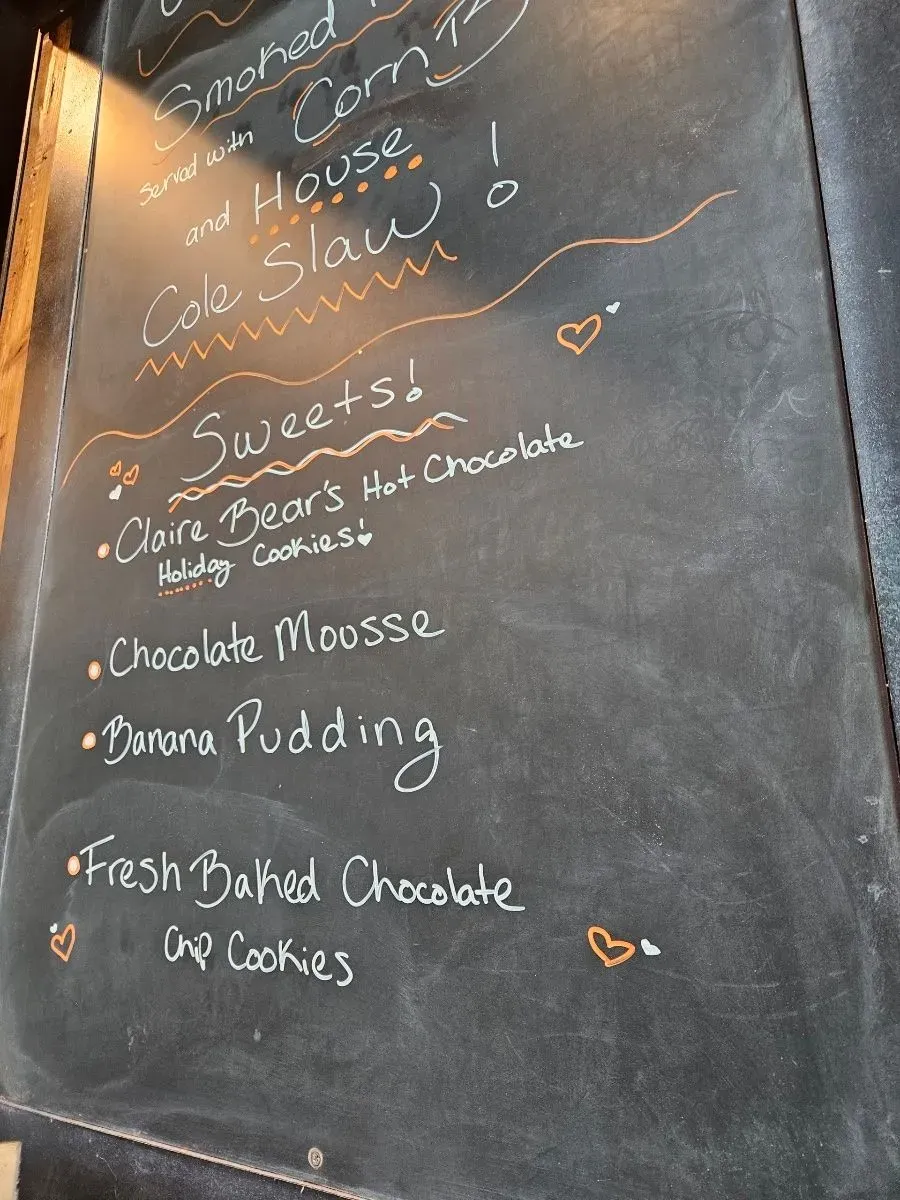 Smoked
Served with Corn
and House
Cole Slaw!
Sweets!
Claire Bear's Hot Chocolate
Holiday Cookies!
Chocolate Mousse
Banana Pudding
Fresh Baked Chocolate
Chip Cookies